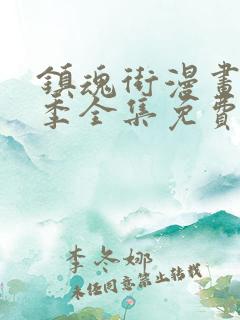 鎮魂街漫畫
季全集免費
李冬娜
未经同意禁止转载